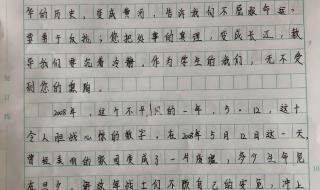 年的历史，变成费用，告诉我们不屈服命运，
要勇于反抗；您把处事的真理，变成长江，教
导我们要沉着冷静，作为学生的我们，无不受
到您的熏陶。
2008年，这个不平凡的一年，5·12，这十
令人胆战心惊的数字，在2008年5月12日这一天
曾经美丽的家园变成了一片废墟，多少生命
解放军战士们不顾自己的安危，冲上